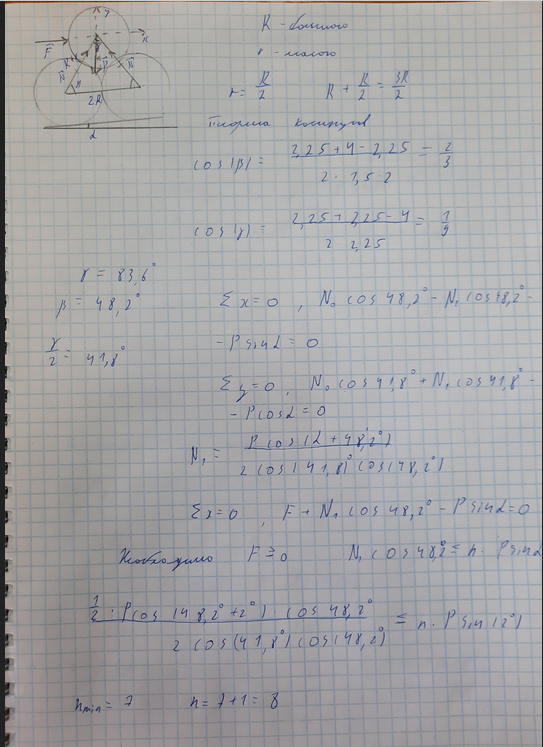 R - большого
r - малого
r = R/2   R + R/2 = 3R/2
Теорема косинусов
cos(β) = (2,25 + 4 - 2,25)/(2 · 1,5 · 2) = 2/3
cos(γ) = (2,25 + 2,25 - 4)/(2 · 2,25) = 1/9
γ = 83,6°
β = 48,2°
γ/2 = 41,8°
Σx = 0 , N₀ cos 48,2° - N₁ cos 48,2° -
- P sin α = 0
Σy = 0 , N₀ cos 41,8° + N₁ cos 41,8° -
- P cos α = 0
N₁ = P cos(α + 48,2°)/(2 cos(41,8°) cos(48,2°))
Σx = 0 , F + N₁ cos 48,2° - P sin α = 0
Необходимо F ≥ 0   N₁ cos 48,2 = n · P sin α
(1/2 · P cos(48,2° + 2°) cos 48,2°)/(2 cos(41,8°) cos(48,2°)) = n · P sin(2°)
n_min = 7   n = 7 + 1 = 8
y
x
F
N
N
P
R
2R
α